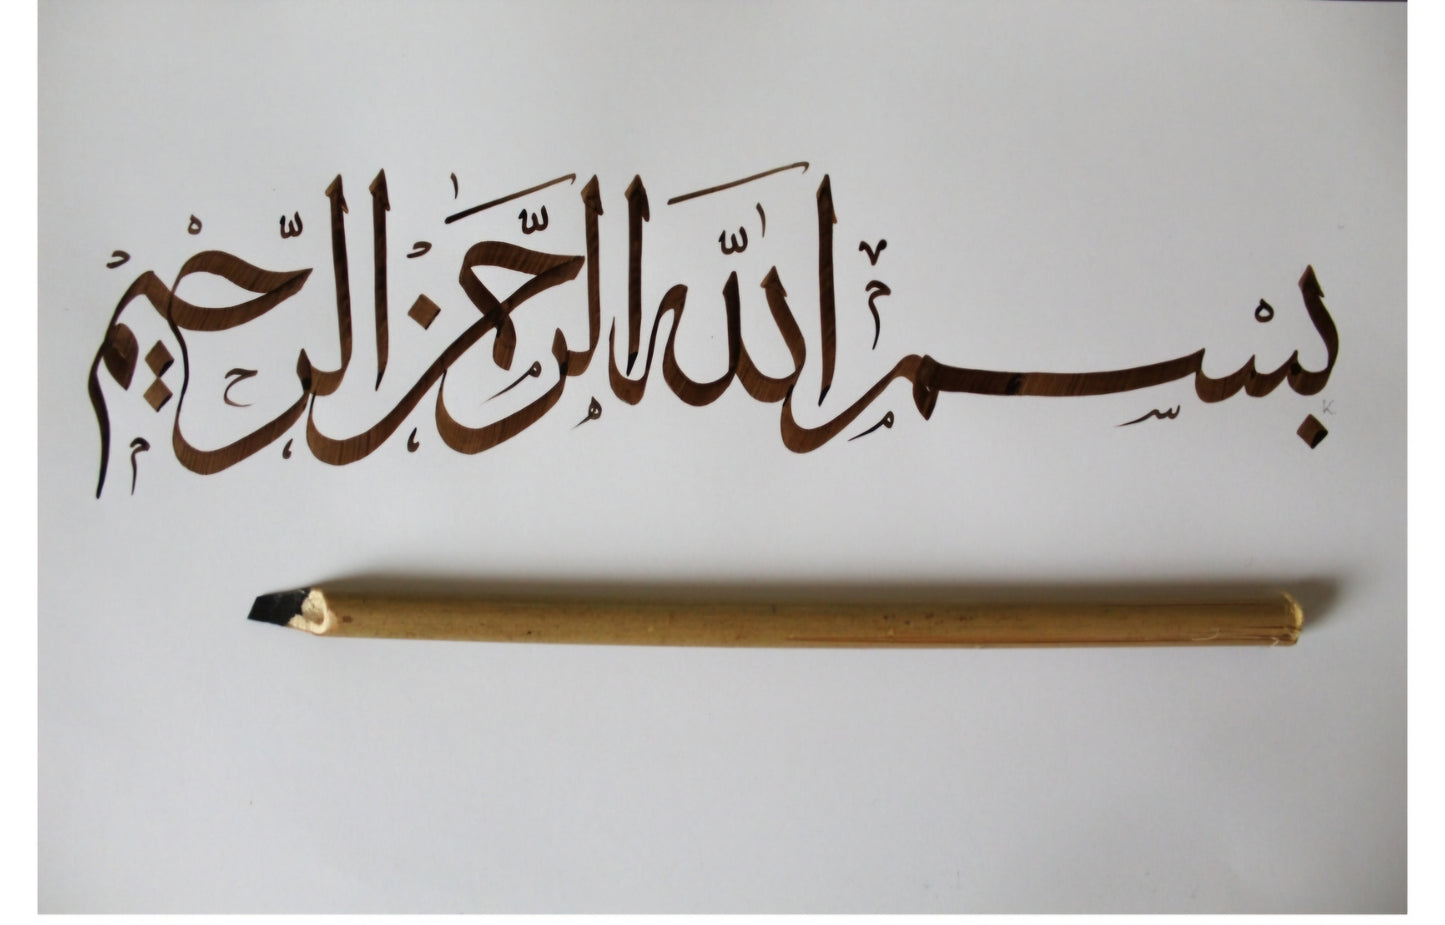 بسم الله الرحمن الرحيم
K